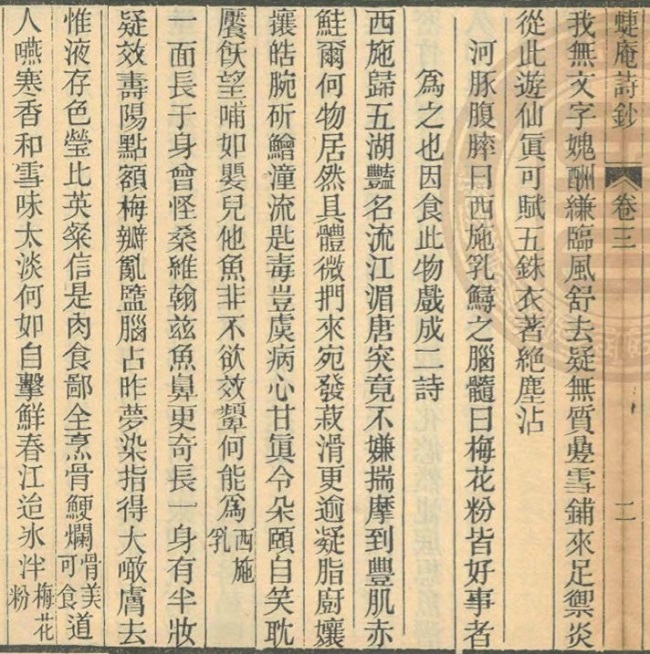 蜨庵詩鈔 卷三 二
我無文字媿酬縑臨風舒去疑無質疊雪鋪來足禦炎
從此遊仙眞可賦五銖衣著絶塵沾
河豚腹膟曰西施乳鱘之腦髓曰梅花粉皆好事者
爲之也因食此物戲成二詩
西施歸五湖豔名流江湄唐突竟不嫌揣摩到豐肌赤
鮭爾何物居然具體微捫來宛發菽滑更逾凝脂廚孃
攘皓腕斫鱠潼流匙毒豈虞病心甘眞令朶頤自笑耽
饜飫望哺如嬰兒他魚非不欲效顰何能爲西施乳
一面長于身曾怪桑維翰兹魚鼻更奇長一身有半妝
疑效壽陽點額梅瓣亂盬腦占昨夢染指得大噉膚去
惟液存色瑩比英粲信是肉食鄙全烹骨鯁爛骨美可食道
人嚥寒香和雪味太淡何如自擊鮮春江迨冰泮梅花粉